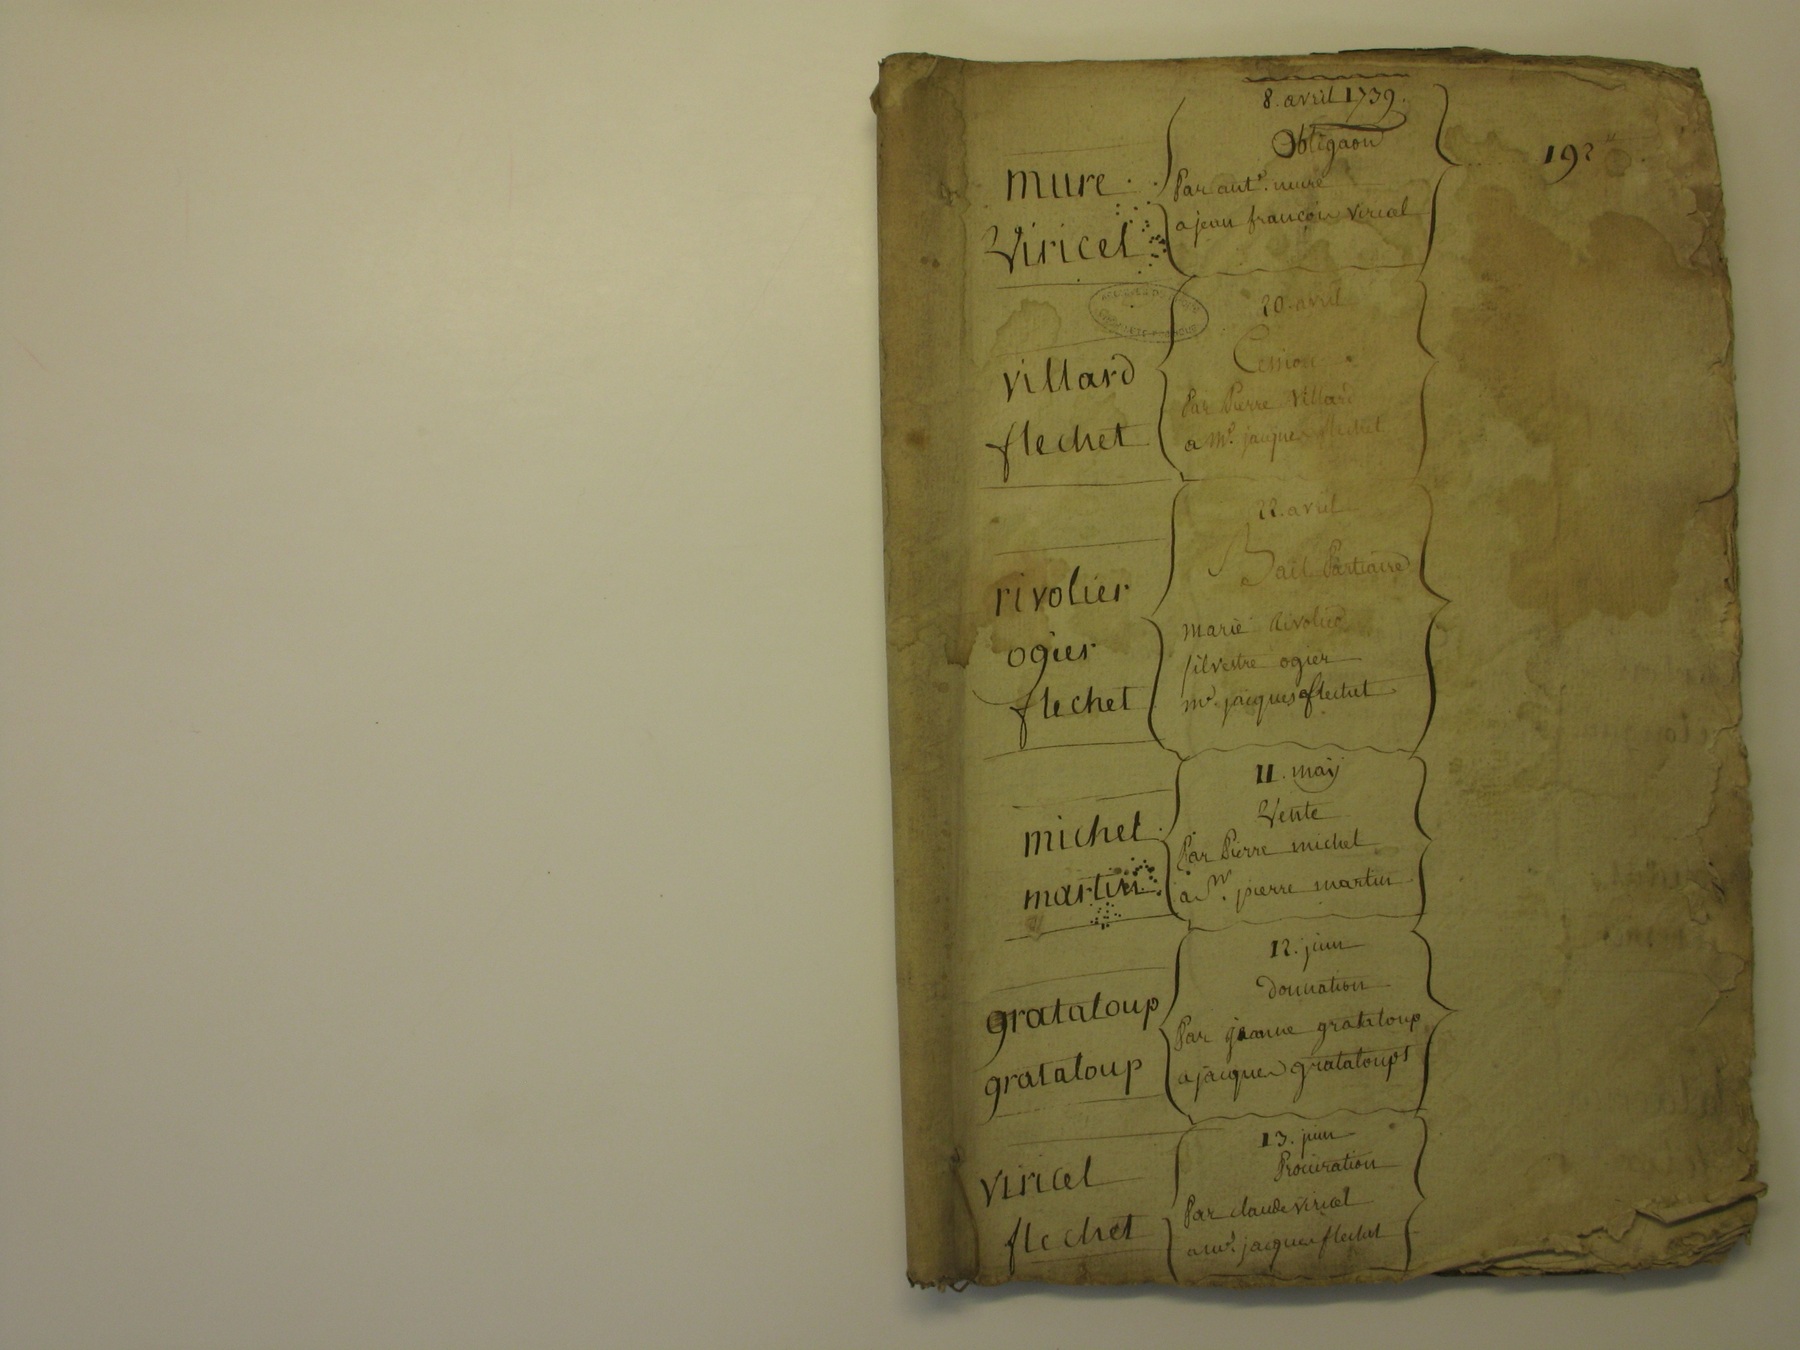 8. avril 1739.
Obligaon
mure
Par ant.e mure
Viricel
a jean francois viricel
192
20. avril
Cession
villard
Par Pierre Villard
flechet
a Mr. jacques flechet
22. avril
Bail Partiaire
rivolier
marie Rivolier
ogier
silvestre ogier
flechet
mr. jacques flechet
11. may
Vente
michel
Par Pierre michel
martin
a Sr. pierre martin
12. juin
donnation
grataloup
Par jeanne grataloup
grataloup
a jacques grataloup
13. juin
Procuration
viricel
Par claude viricel
flechet
a mr. jacques flechet